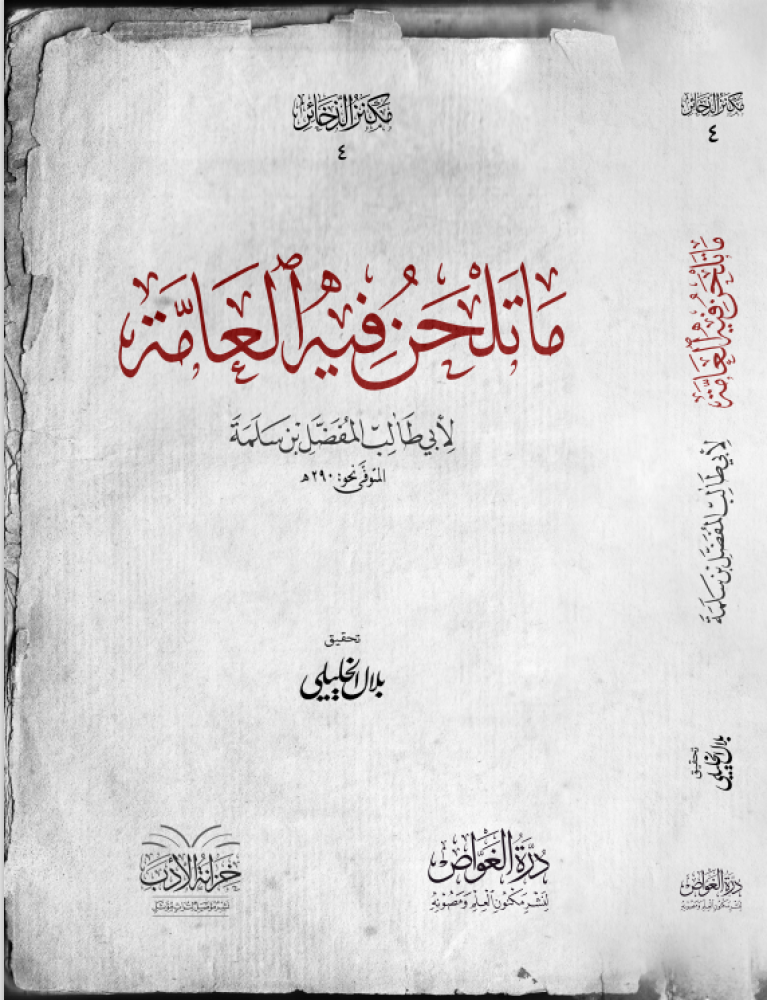 مكنز الذخائر
٤
مَا تَلْحَنُ فِيهِ ٱلْعَامَّة
لِأَبِي طَالِبٍ المُفَضَّلِ بْنِ سَلَمَةَ
المتوفى نحو: ٢٩٠ هـ
تحقيق
بلال الخليلي
دُرَّةُ الغَوَّاص
لِنَشْرِ مَكْنُونِ العِلْمِ وَمَصُونِهِ
خزانة الأدب
مكنز الذخائر
٤
مَا تَلْحَنُ فِيهِ ٱلْعَامَّة
لِأَبِي طَالِبٍ المُفَضَّلِ بْنِ سَلَمَةَ
تحقيق
بلال الخليلي
دُرَّةُ الغَوَّاص
لِنَشْرِ مَكْنُونِ العِلْمِ وَمَصُونِهِ